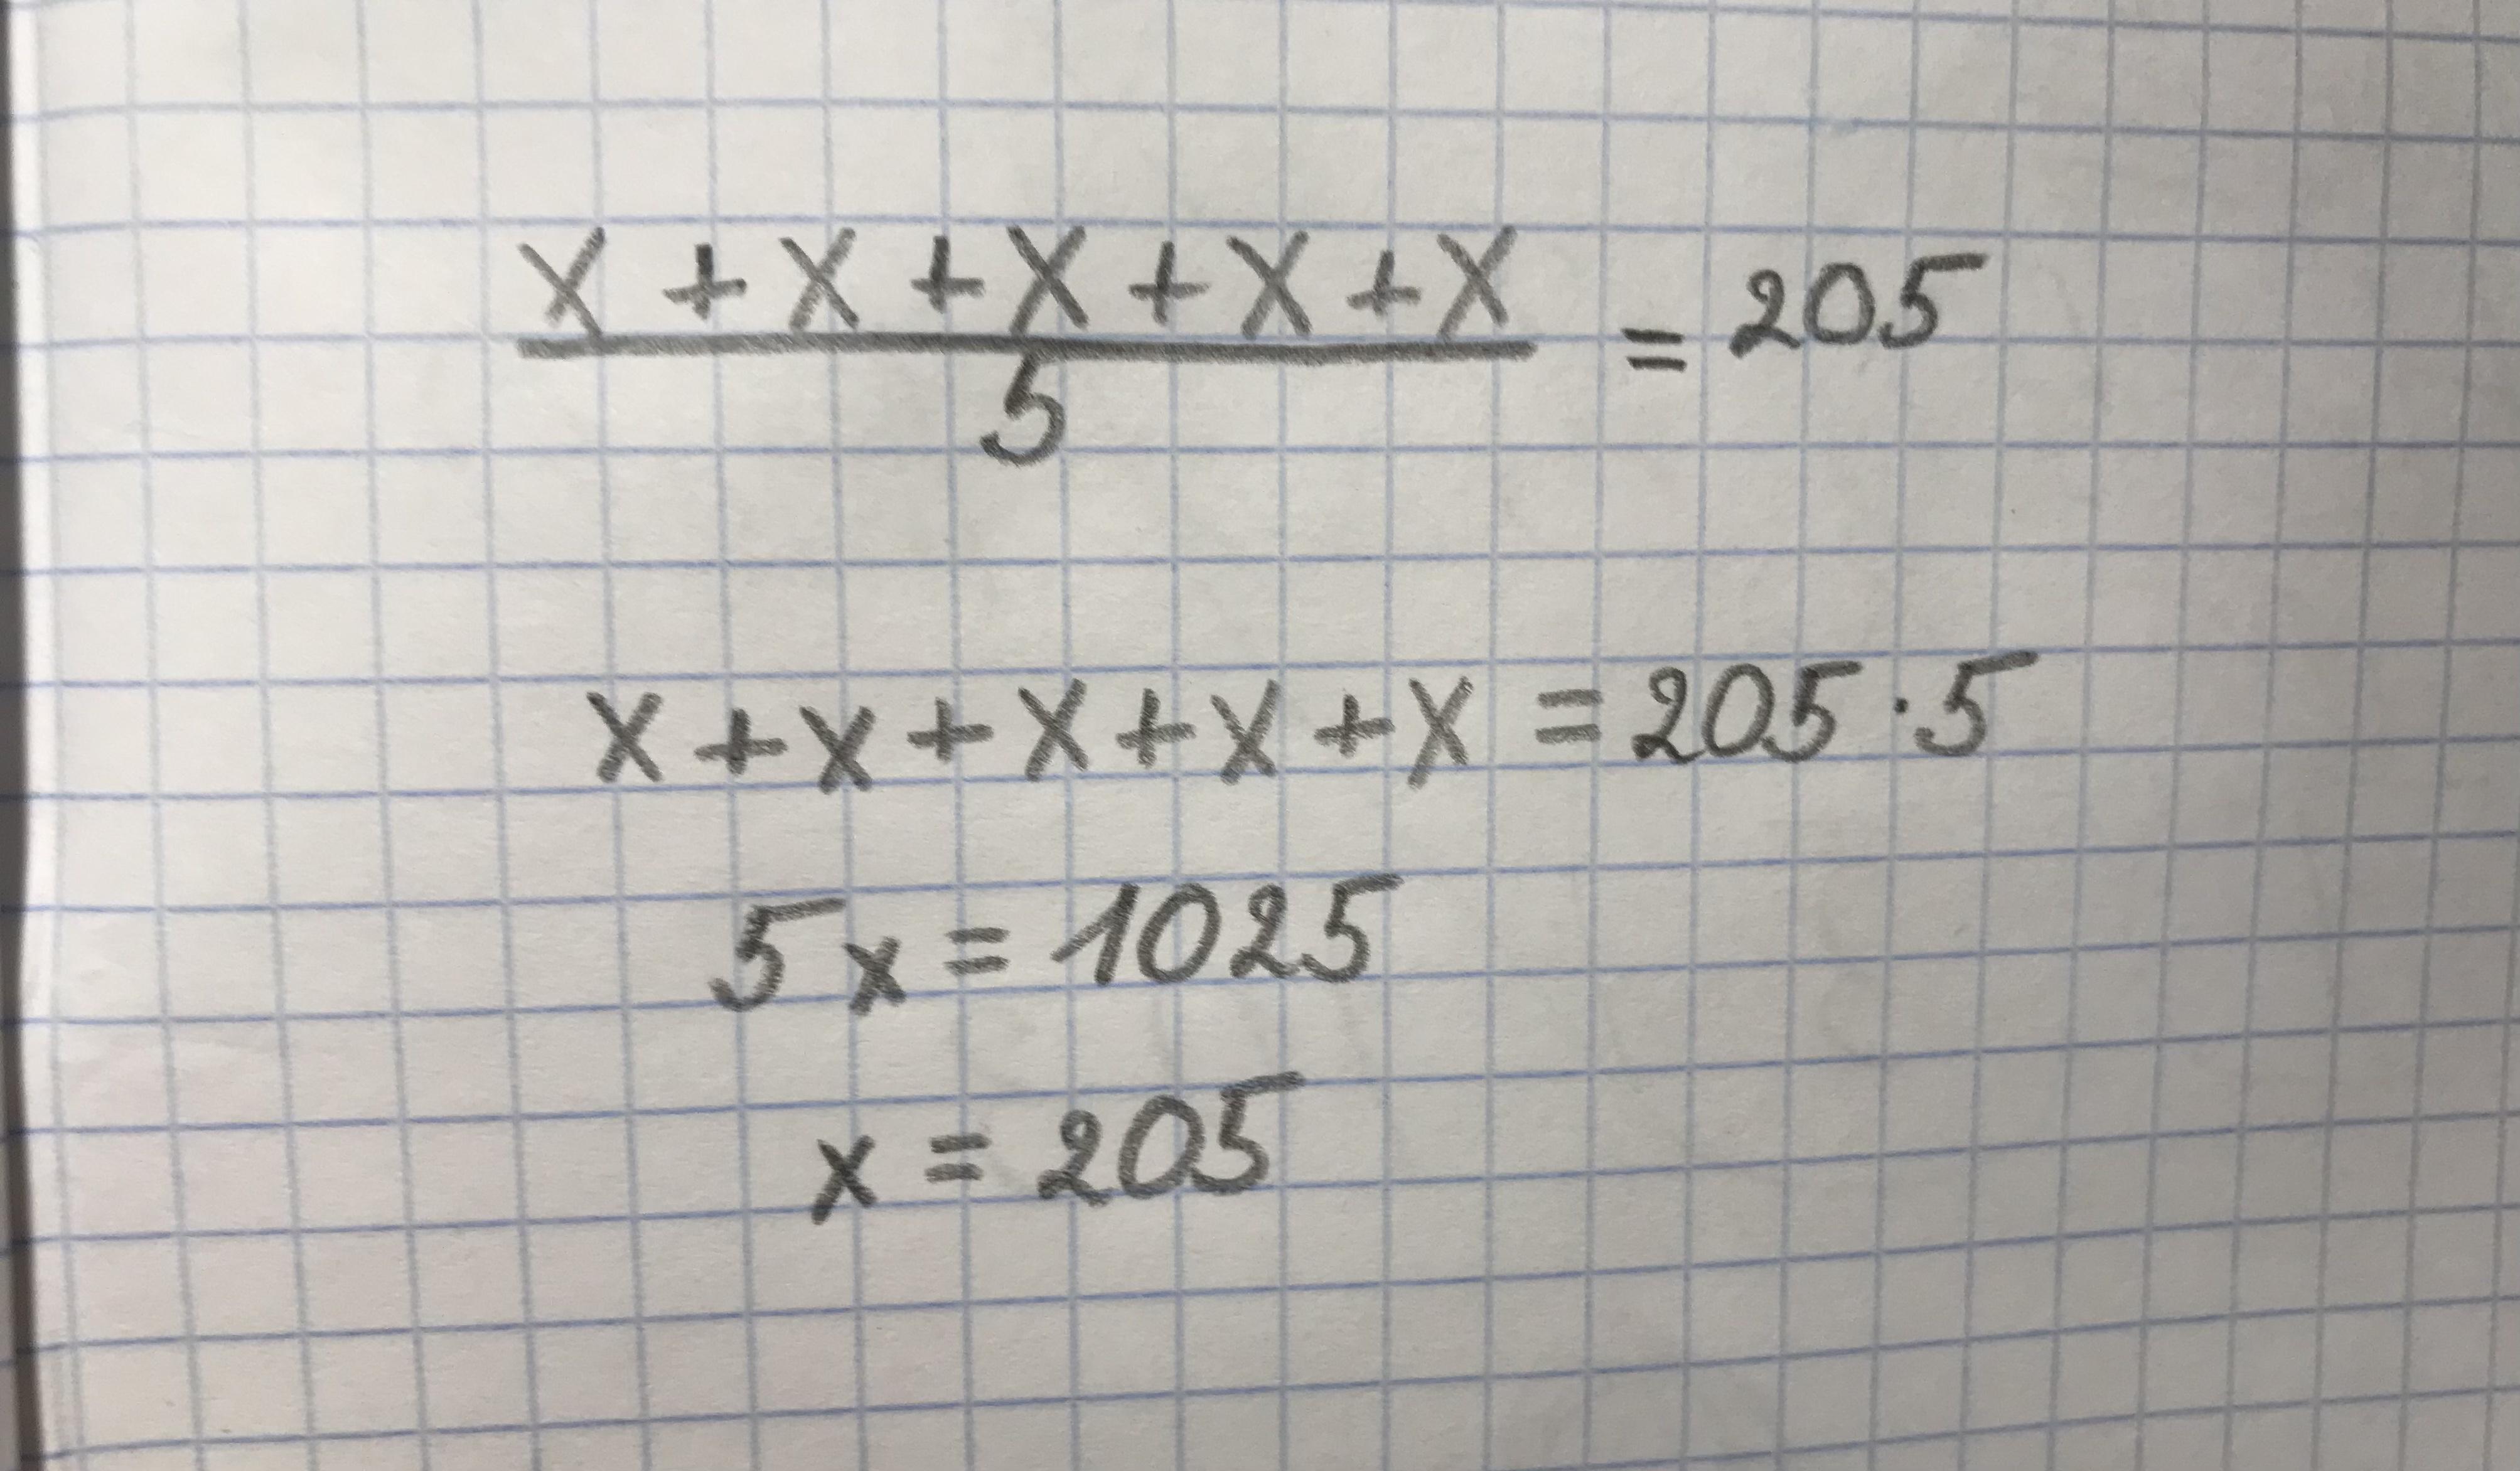 x + x + x + x + x / 5 = 205
x + x + x + x + x = 205 · 5
5x = 1025
x = 205